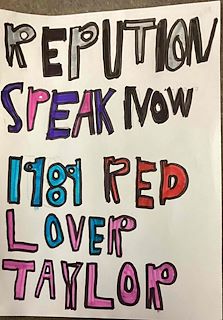 REPUTION
SPEAK NOW
1989 RED
LOVER
TAYLOR